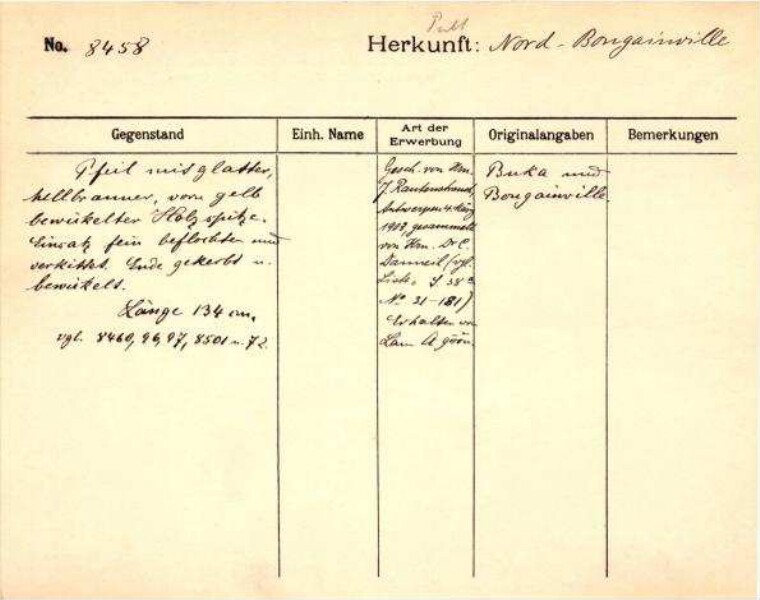 No. 8458
Pult
Herkunft: Nord-Bongainville
Gegenstand
Einh. Name
Art der Erwerbung
Originalangaben
Bemerkungen
Pfeil mit glatter,
hellbrauner, vorn gelb
bewickelter Holzspitze.
Einsatz fein beflochten und
verkittet. Ende gekerbt u.
bewickelt.
Länge 134 cm.
vgl. 8460, 96, 97, 8501 u. 72.
Gesch. von Hrn.
J. Rautenstrauch,
Antwerpen 4. März
1903, gesammelt
von Hrn. Dr. C.
Danneil (vgl.
Liste, S 38
No 31-181)
Erhalten von
Lam
Buka und
Bougainville.